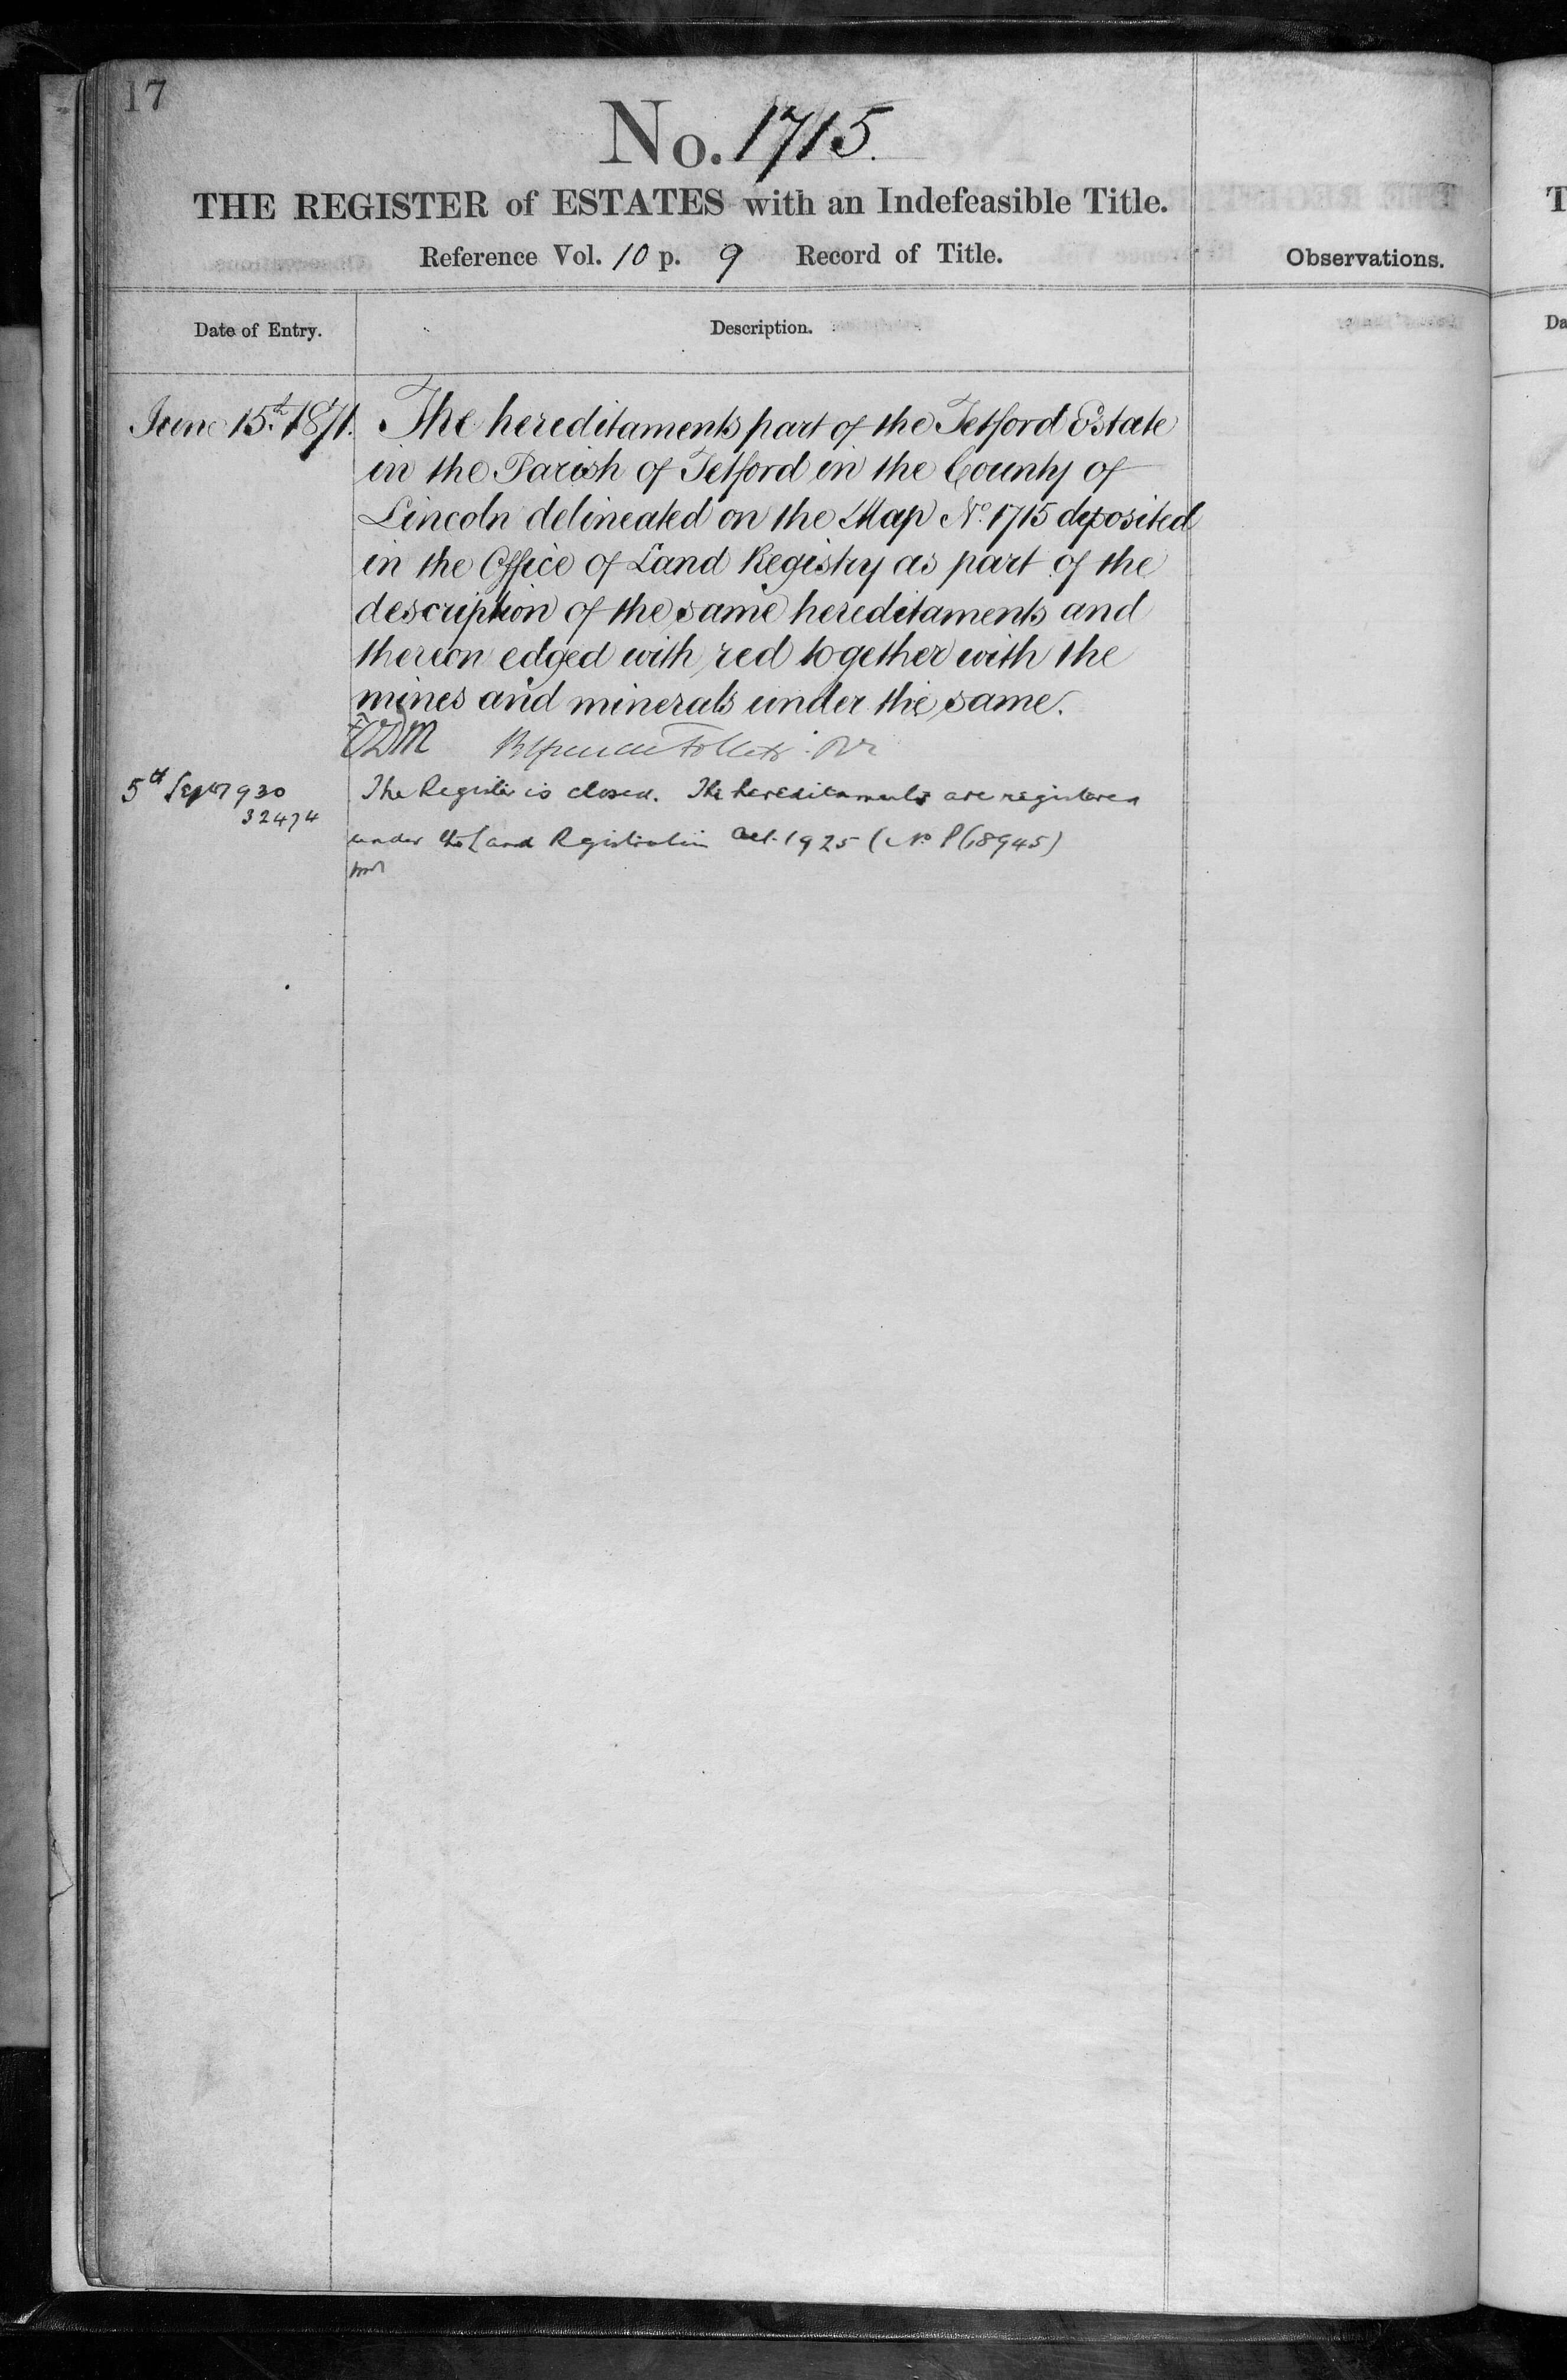 17
No. 1715.
THE REGISTER of ESTATES with an Indefeasible Title.
Reference Vol. 10 p. 9 Record of Title.
Observations.
Date of Entry.
Description.
June 15th 1871.
The hereditaments part of the Tetford Estate
in the Parish of Tetford in the County of
Lincoln delineated on the Map No. 1715 deposited
in the Office of Land Registry as part of the
description of the same hereditaments and
thereon edged with red together with the
mines and minerals under the same.
5th Sept 1930
32474
The Register is closed. The hereditaments are registered
under the Land Registration Act 1925 (No P68945)
T
Da